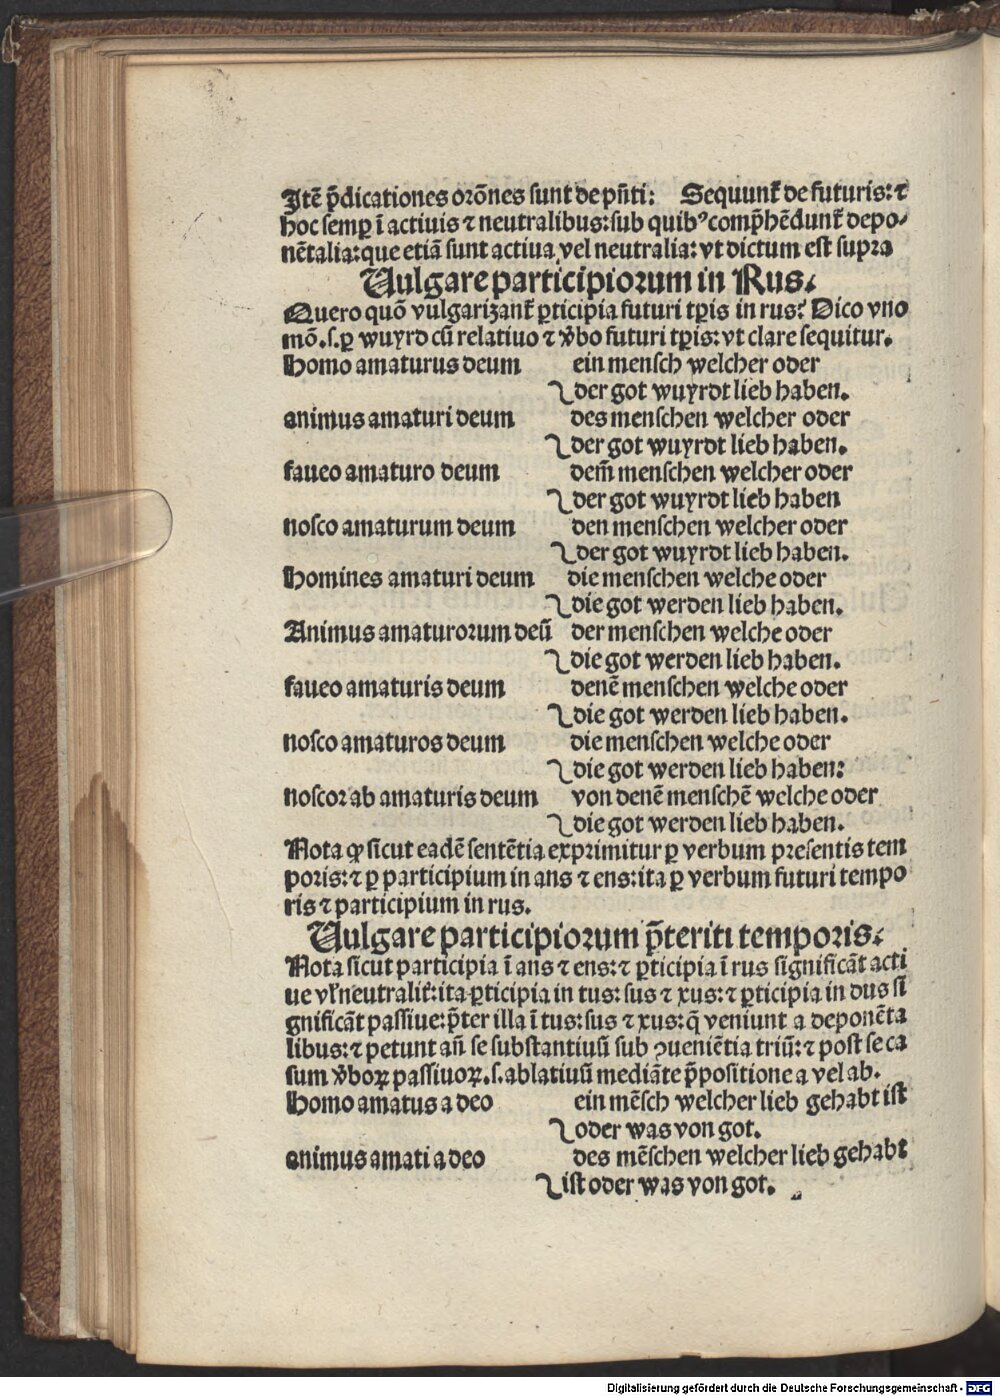 Itē p̄dicationes orōnes sunt de pn̄ti: Sequunt᷑ de futuris: ⁊
hoc semꝑ ī actiuis ⁊ neutralibus: sub quibꝰ comp̄hēdunt᷑ depo⸗
nētalia: que etiā sunt actiua vel neutralia: vt dictum est supra
Uulgare participiorum in Rus.
Quero quō vulgarizant᷑ ꝑticipia futuri tꝑis in rus? Dico vno
mō. s. ꝑ wuyrd cū relatiuo ⁊ v̄bo futuri tꝑis: vt clare sequitur.
Homo amaturus deum ein mensch welcher oder
der got wuyrdt lieb haben.
animus amaturi deum des menschen welcher oder
der got wuyrdt lieb haben.
faueo amaturo deum dem̄ menschen welcher oder
der got wuyrdt lieb haben
nosco amaturum deum den menschen welcher oder
der got wuyrdt lieb haben.
Homines amaturi deum die menschen welche oder
die got werden lieb haben.
Animus amaturorum deū der menschen welche oder
die got werden lieb haben.
faueo amaturis deum denē menschen welche oder
die got werden lieb haben.
nosco amaturos deum die menschen welche oder
die got werden lieb haben:
noscor ab amaturis deum von denē menschē welche oder
die got werden lieb haben.
Nota ꝙ sicut eadē sentētia exprimitur ꝑ verbum presentis tem
poris: ⁊ ꝑ participium in ans ⁊ ens: ita ꝑ verbum futuri tempo
ris ⁊ participium in rus.
Uulgare participiorum p̄teriti temporis.
Nota sicut participia ī ans ⁊ ens: ⁊ ꝑticipia ī rus significāt acti
ue vl̓ neutralit᷑: ita ꝑticipia in tus: sus ⁊ xus: ⁊ ꝑticipia in dus si
gnificāt passiue: p̄ter illa ī tus: sus ⁊ xus: q̄ veniunt a deponēta
libus: ⁊ petunt an̄ se substantiuū sub ꝯueniētia triū: ⁊ post se ca
sum v̄boꝝ passiuoꝝ. s. ablatiuū mediāte p̄positione a vel ab.
Homo amatus a deo ein mēsch welcher lieb gehabt ist
oder was von got.
animus amati a deo des mēschen welcher lieb gehabt
ist oder was von got.
Digitalisierung gefördert durch die Deutsche Forschungsgemeinschaft - DFG